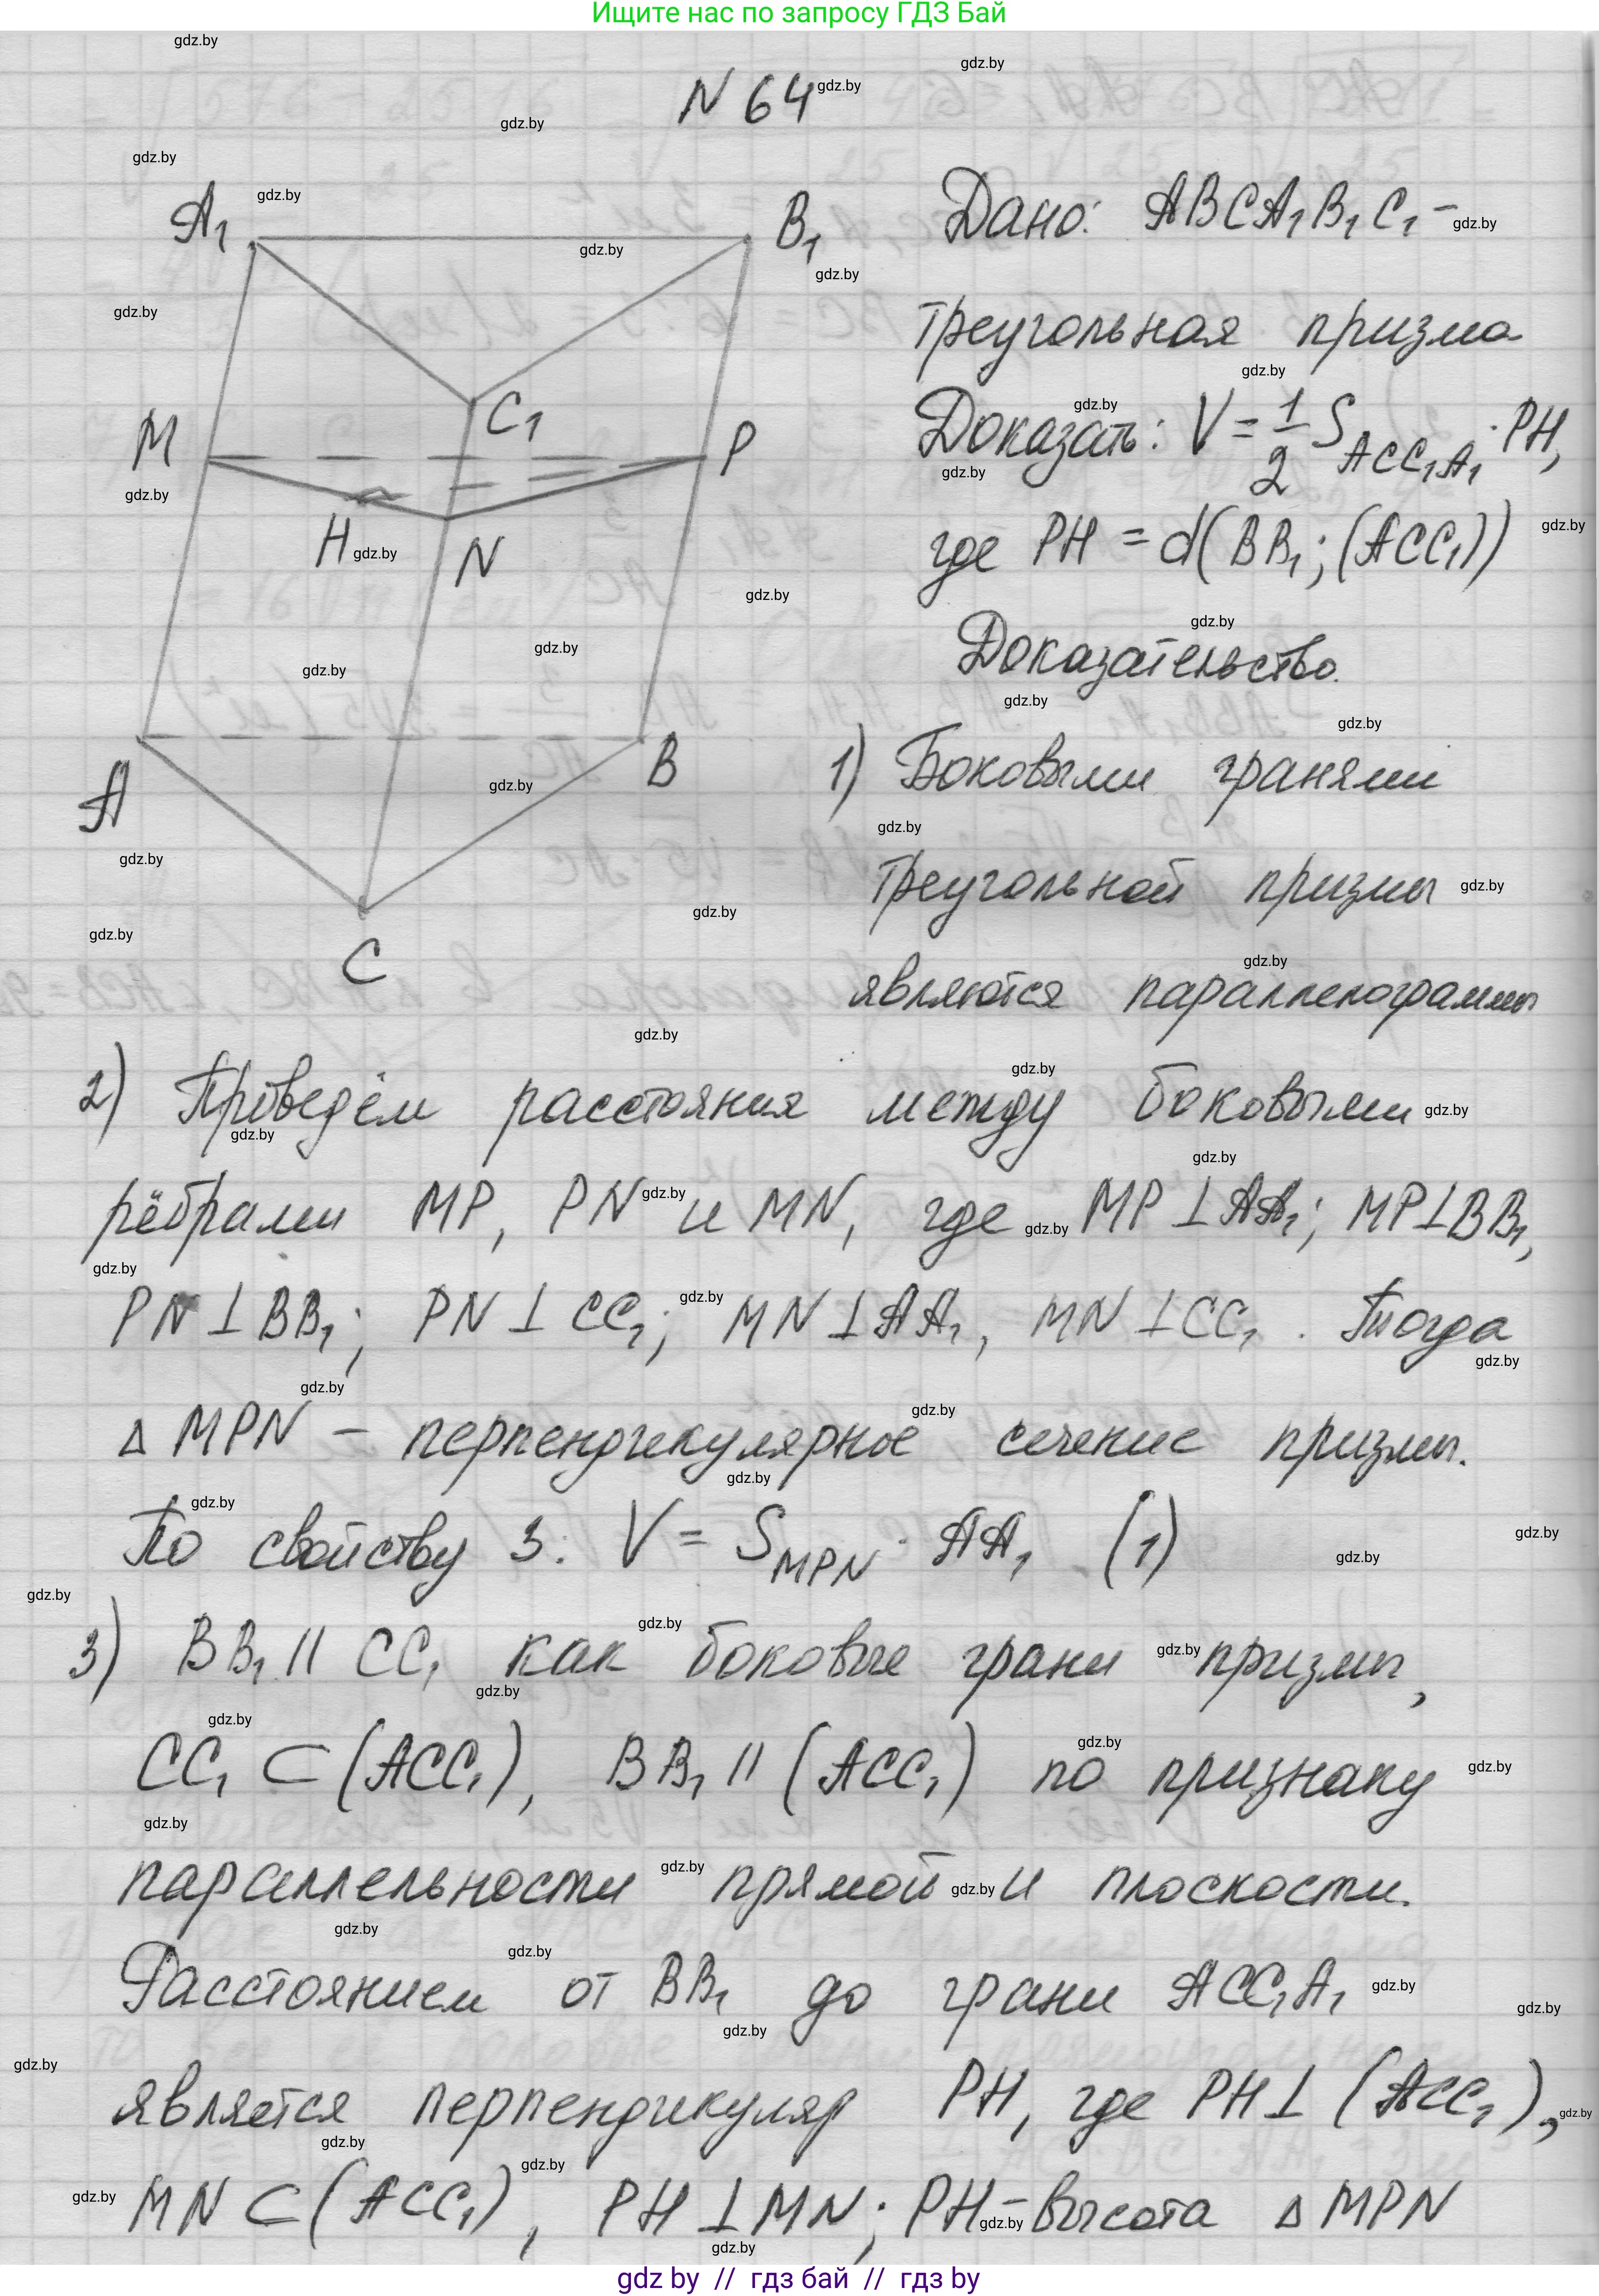 Ищите нас по запросу ГДЗ Бай
N 64
Дано: ABCA₁B₁C₁ –
треугольная призма
Доказать: V = 1/2 S_ACC₁A₁ · PH,
где PH = d(BB₁; (ACC₁))
Доказательство.
A₁
B₁
C₁
M
P
H
N
A
B
C
1) Боковыми гранями
треугольной призмы
являются параллелограммы
2) Проведём расстояния между боковыми
рёбрами MP, PN и MN, где MP ⊥ AA₁; MP ⊥ BB₁,
PN ⊥ BB₁; PN ⊥ CC₁; MN ⊥ AA₁, MN ⊥ CC₁. Тогда
Δ MPN – перпендикулярное сечение призмы.
По свойству 3: V = S_MPN · AA₁ (1)
3) BB₁ || CC₁ как боковые грани призмы,
CC₁ ⊂ (ACC₁), BB₁ || (ACC₁) по признаку
параллельности прямой и плоскости.
Расстоянием от BB₁ до грани ACC₁A₁
является перпендикуляр PH, где PH ⊥ (ACC₁),
MN ⊂ (ACC₁), PH ⊥ MN; PH – высота Δ MPN
gdz by // гдз бай // гдз by
gdz.by